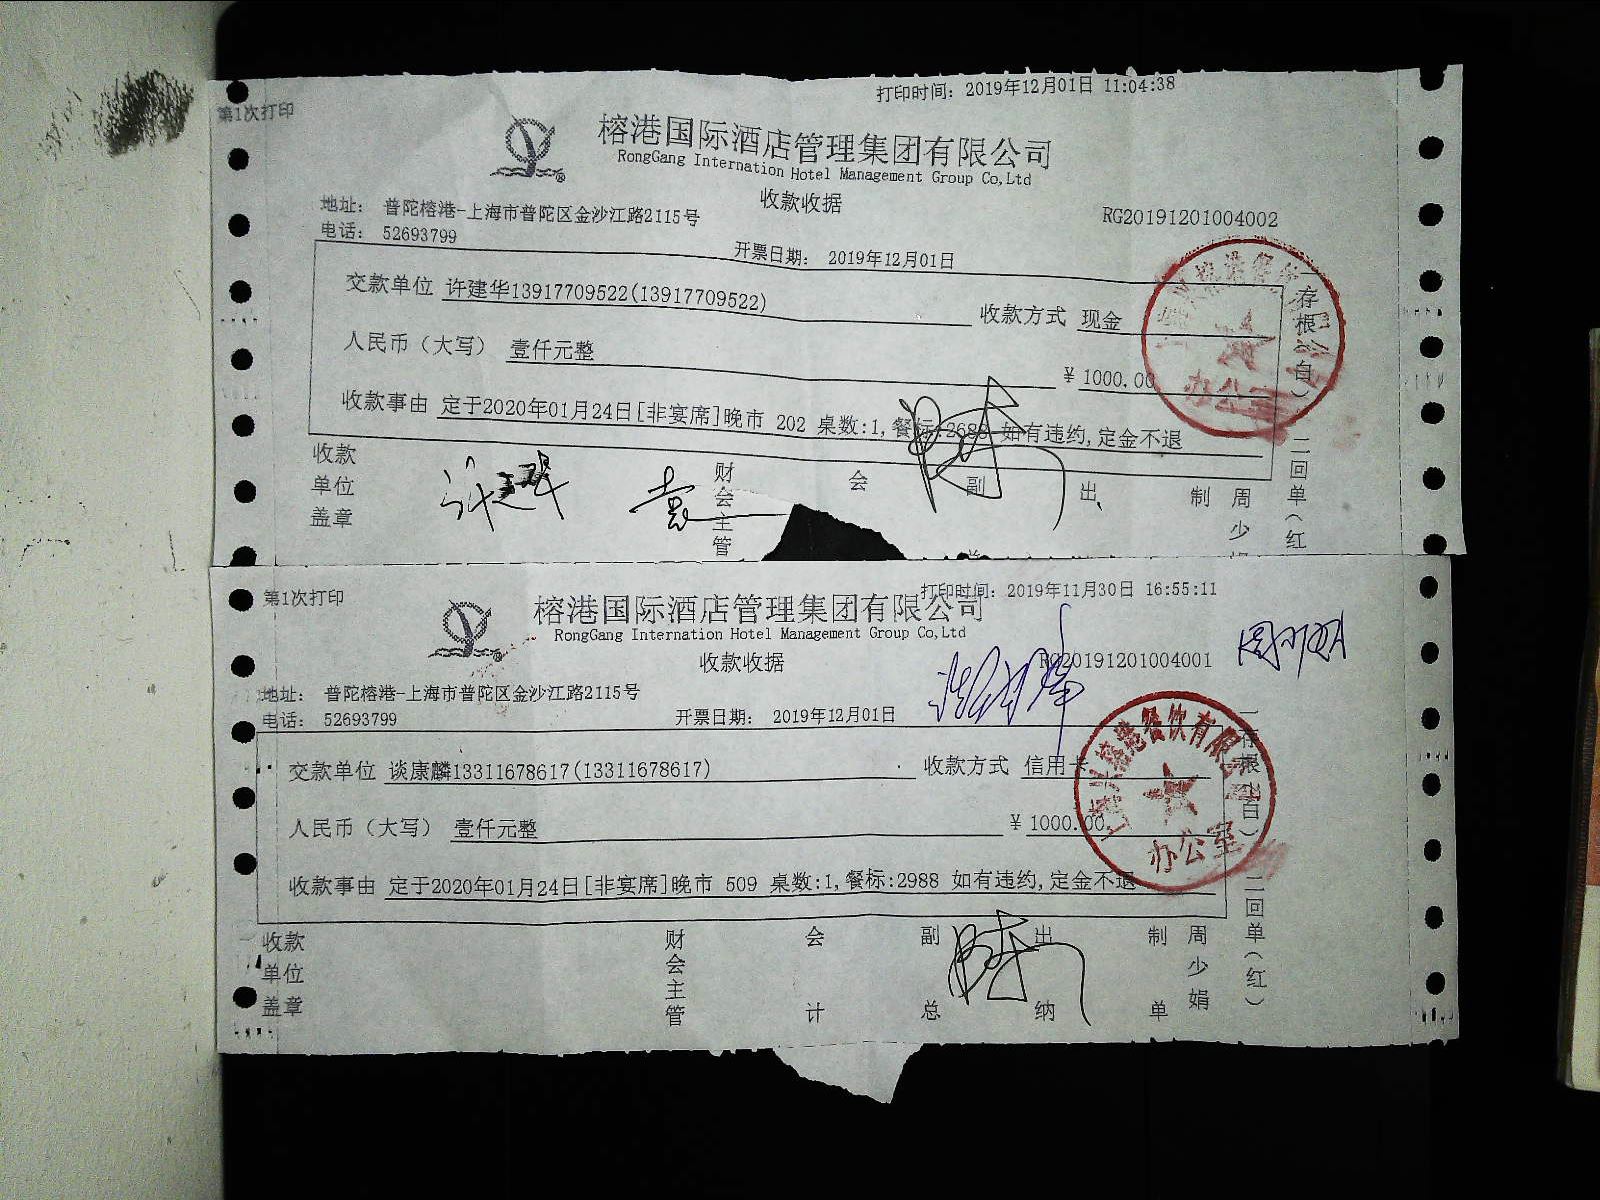 第1次打印
打印时间: 2019年12月01日 11:04:38
榕港国际酒店管理集团有限公司
RongGang Internation Hotel Management Group Co,Ltd
收款收据
地址: 普陀榕港-上海市普陀区金沙江路2115号
RG20191201004002
电话: 52693799
开票日期: 2019年12月01日
交款单位 许建华13917709522(13917709522)
收款方式 现金
人民币（大写） 壹仟元整
¥ 1000.00
收款事由 定于2020年01月24日[非宴席]晚市 202 桌数:1,餐标:2688 如有违约,定金不退
存根（白）
二回单（红
办公室
收款单位盖章
财会主管
会
副
出
制
周少
第1次打印
打印时间: 2019年11月30日 16:55:11
榕港国际酒店管理集团有限公司
RongGang Internation Hotel Management Group Co,Ltd
收款收据
RG20191201004001
地址: 普陀榕港-上海市普陀区金沙江路2115号
电话: 52693799
开票日期: 2019年12月01日
交款单位 谈康麟13311678617(13311678617)
收款方式 信用卡
人民币（大写） 壹仟元整
¥ 1000.00
收款事由 定于2020年01月24日[非宴席]晚市 509 桌数:1,餐标:2988 如有违约,定金不退
一存根（白）
二回单（红）
榕港餐饮有限
办公室
收款单位盖章
财会主管
会计
副总
出纳
制单
周少娟